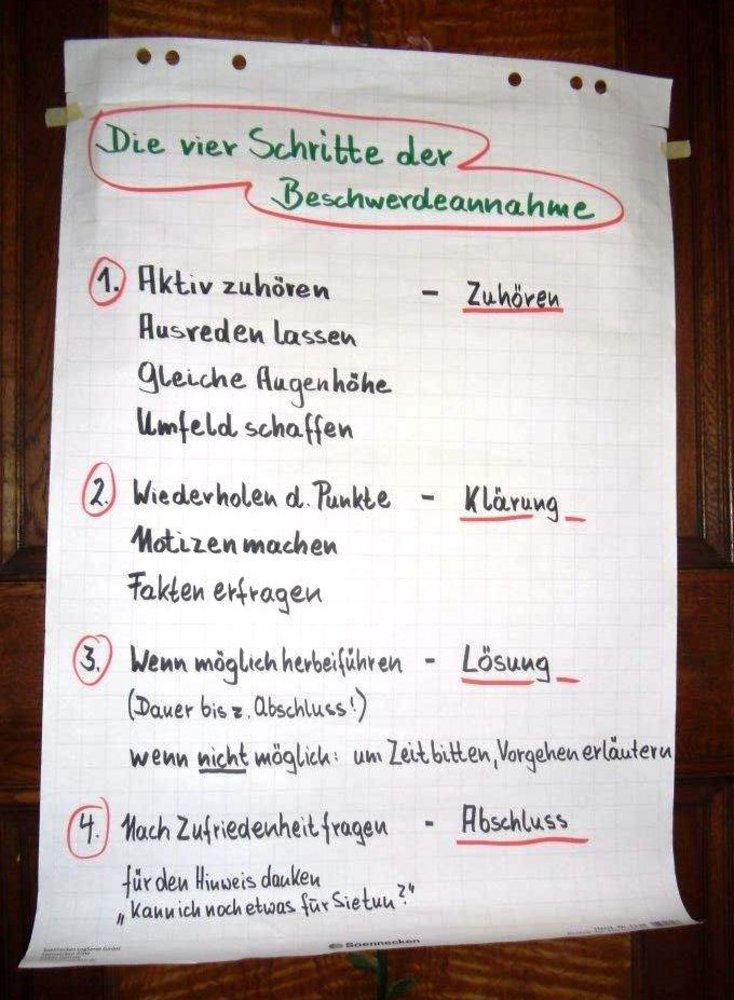 Die vier Schritte der
Beschwerdeannahme
1. Aktiv zuhören - Zuhören
Ausreden lassen
gleiche Augenhöhe
Umfeld schaffen
2. Wiederholen d. Punkte - Klärung
Notizen machen
Fakten erfragen
3. Wenn möglich herbeiführen - Lösung
(Dauer bis z. Abschluss!)
wenn nicht möglich: um Zeit bitten, Vorgehen erläutern
4. Nach Zufriedenheit fragen - Abschluss
für den Hinweis danken
„Kann ich noch etwas für Sie tun?"
Soennecken